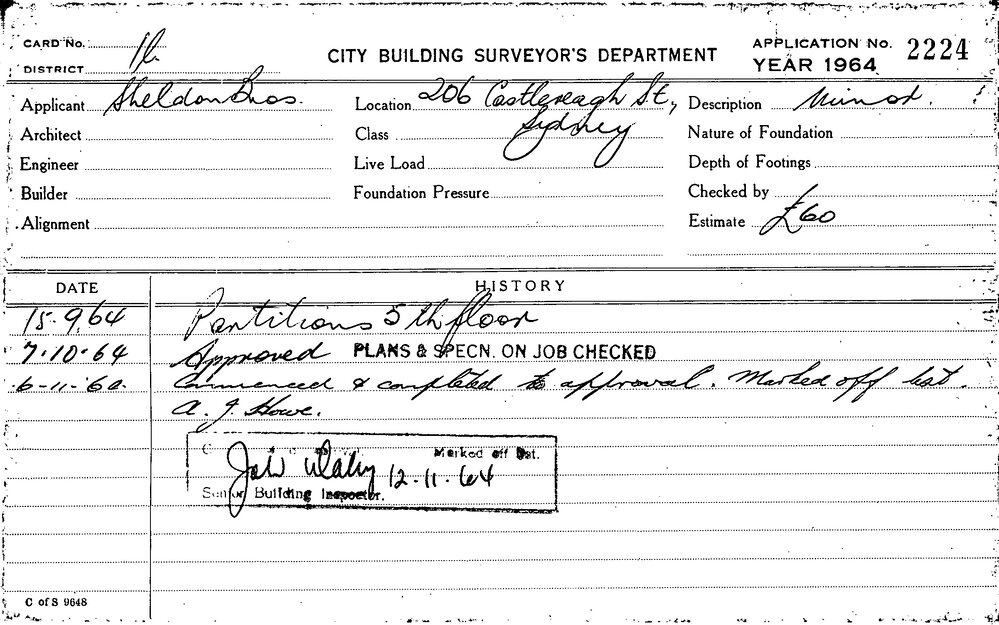 CARD No.
DISTRICT
CITY BUILDING SURVEYOR'S DEPARTMENT
APPLICATION No. 2224
YEAR 1964
Applicant Sheldon Bros.
Location 206 Castlereagh St.,
Sydney
Description Minor.
Architect
Class
Nature of Foundation
Engineer
Live Load
Depth of Footings
Builder
Foundation Pressure
Checked by
Alignment
Estimate £60
DATE
HISTORY
15.9.64 Partitions 5th floor
7.10.64 Approved PLANS & SPECN. ON JOB CHECKED
6-11-6 Commenced & completed to approval. Marked off list.
A. J. Howe.
Marked off list.
12.11.64
Senior Building Inspector.
C of S 9648